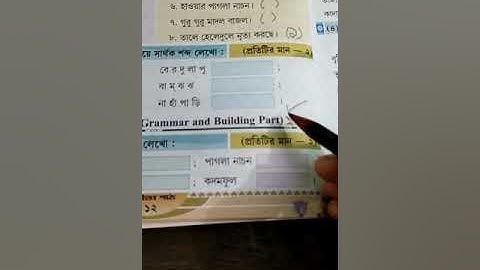 ৬. হাওয়ার পাগলা নাচন। ( )
৭. গুরু গুরু মাদল বাজল। ( )
৮. তালে হেলেদুলে নৃত্য করছে। (২)
য়ে সার্থক শব্দ লেখো : (প্রতিটির মান — ২
বে র দু লা পু ;
বা ম্ ঝ ঝ ;
না হাঁ পা ড়ি ।
Grammar and Building Part)
লেখো : (প্রতিটির মান — ২)
; পাগলা নাচন
; কদমফুল
১২